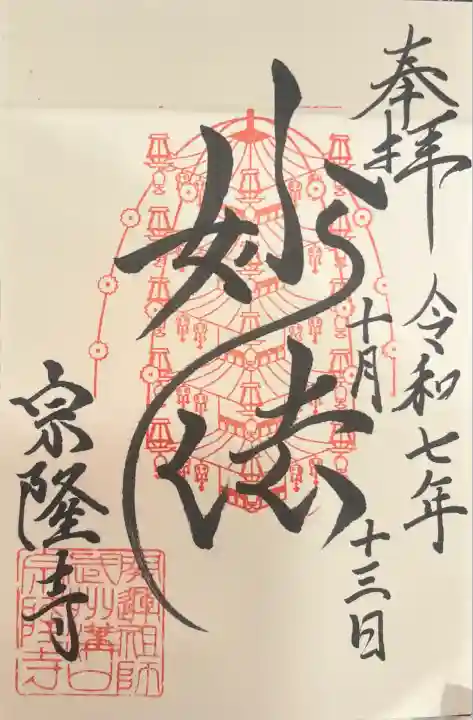 奉拝
令和七年
十月
十三日
妙法
宗隆寺
開運祖師
武州溝口
宗隆寺